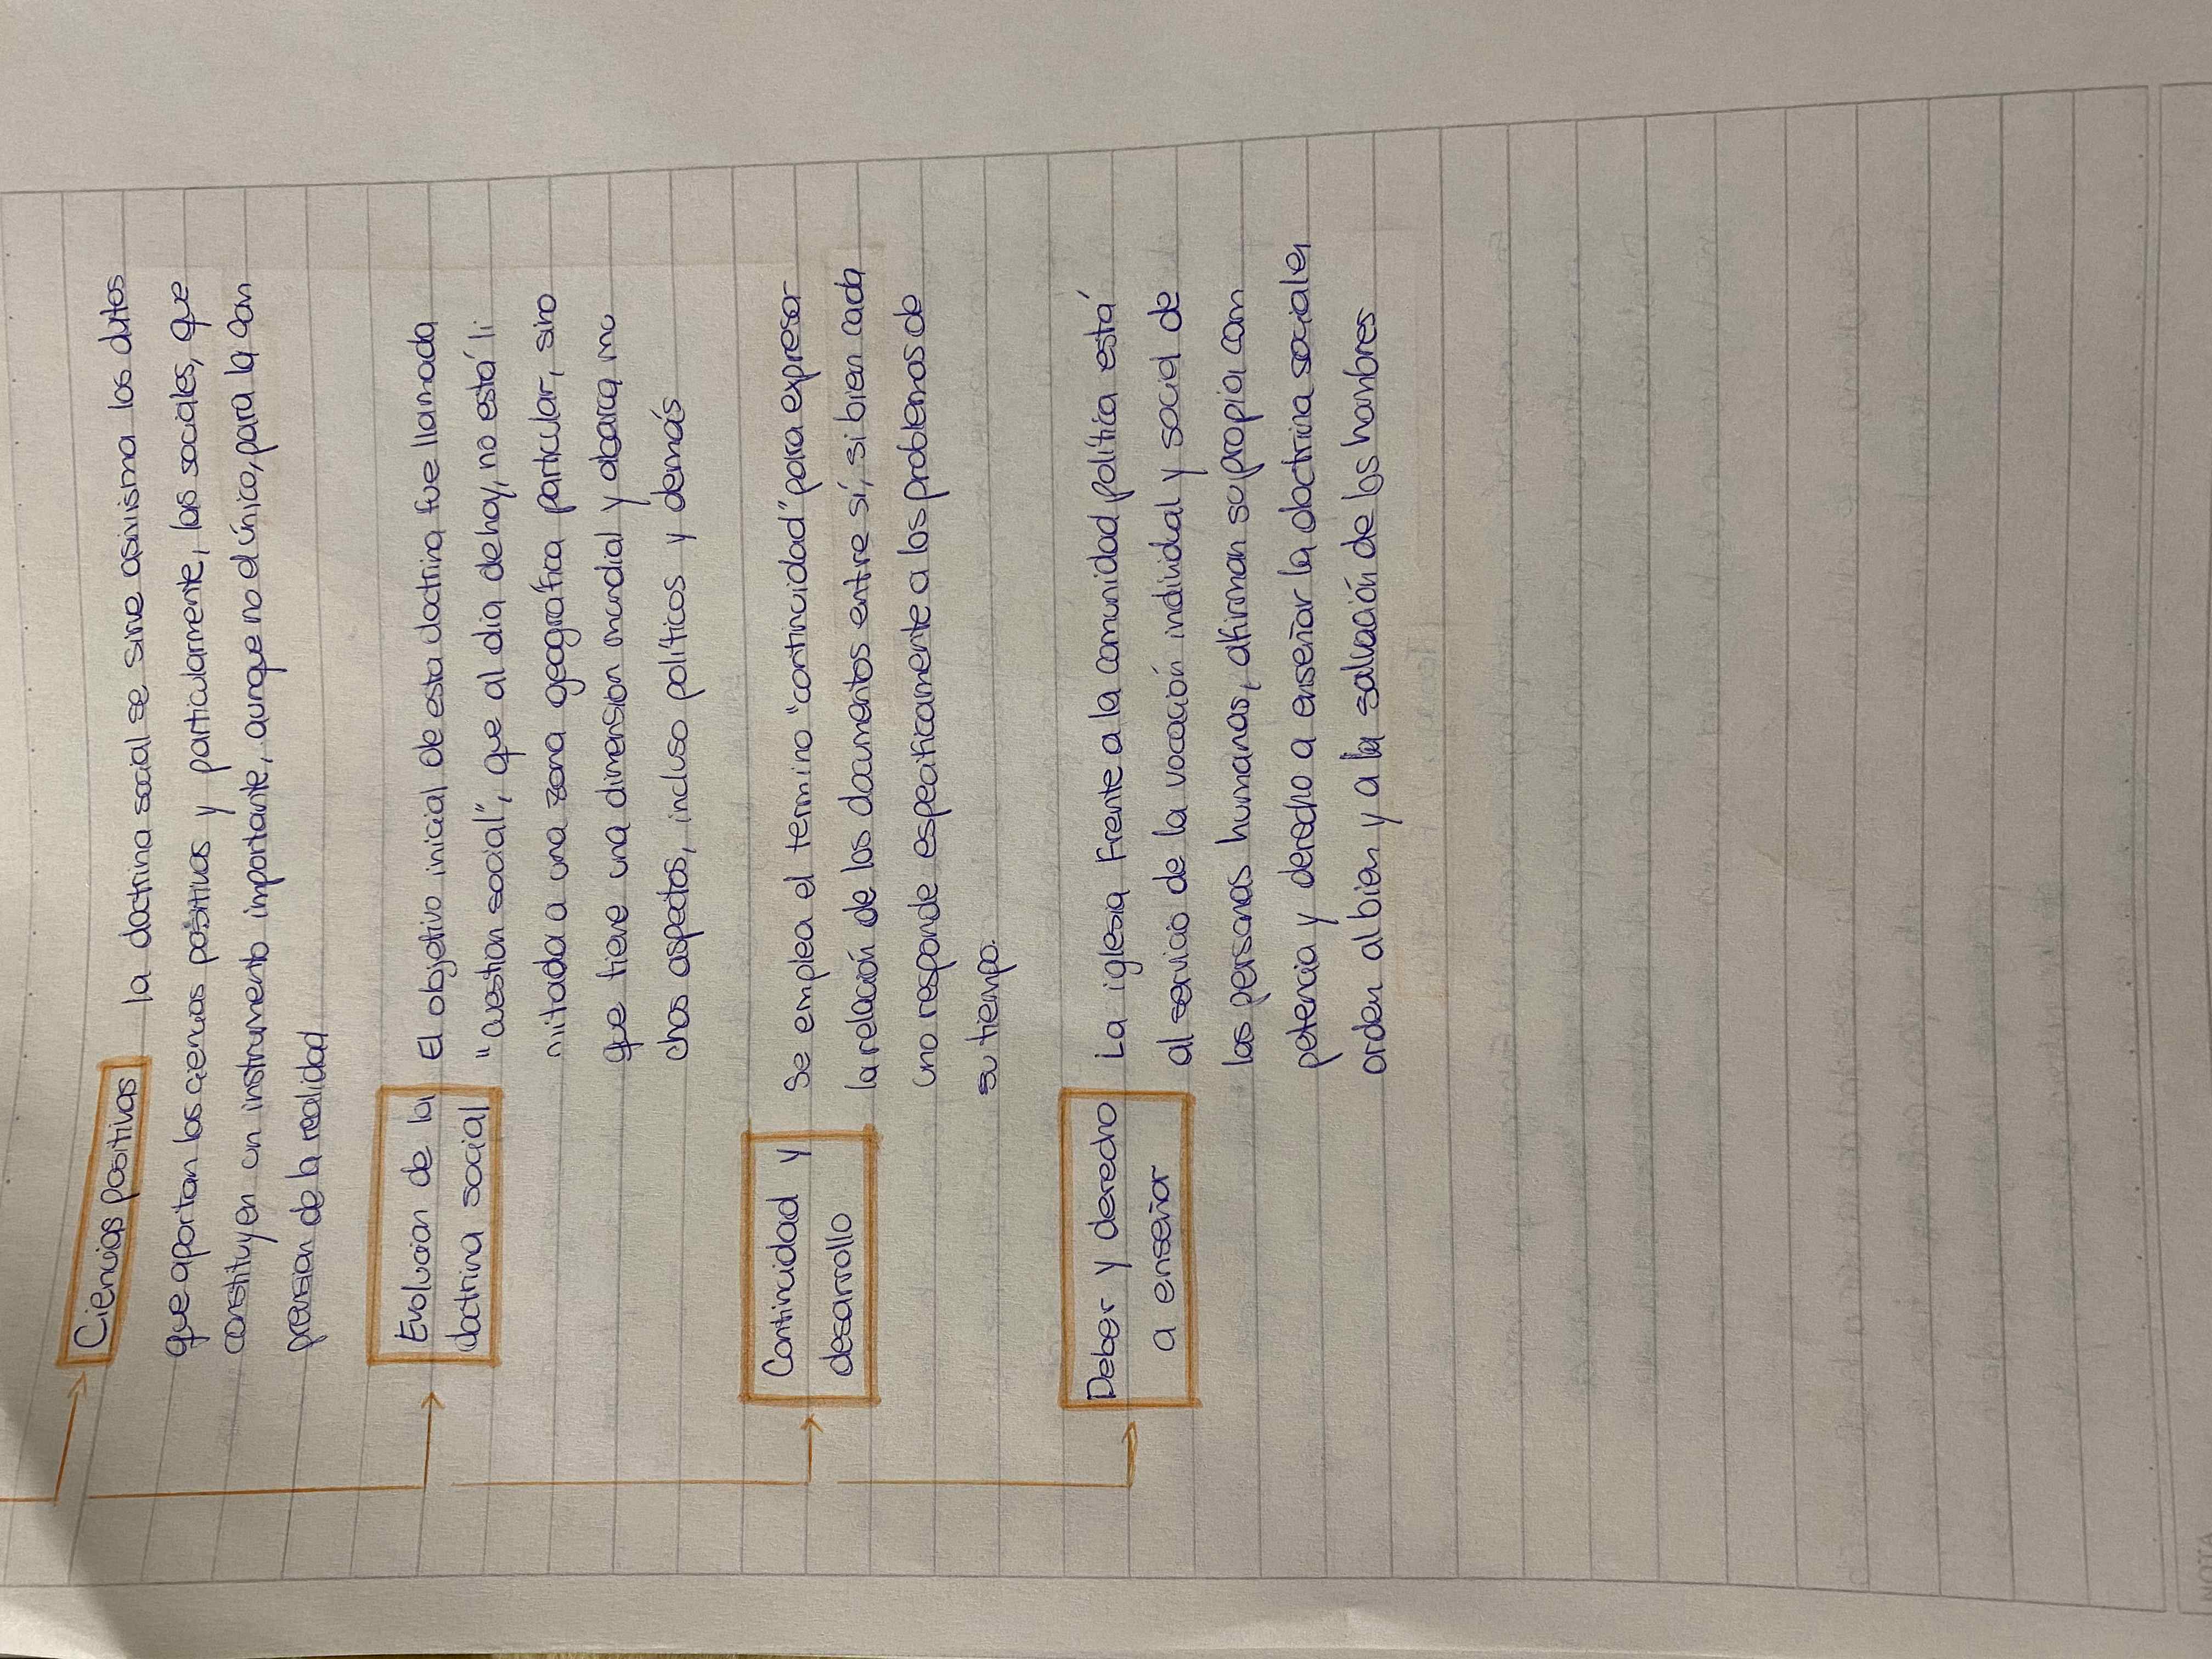 Ciencias positivas la doctrina social se sirve asimismo los datos
que aportan las ciencias positivas y particularmente, las sociales, que
constituyen un instrumento importante, aunque no el único, para la com
prension de la realidad
Evolucion de la El objetivo inicial de esta doctrina fue llamada
doctrina social "cuestion social", que al dia de hoy, no está li
mitada a una zona geográfica particular, sino
que tiene una dimension mundial y abarca mu
chos aspectos, incluso políticos y demás
Continuidad y Se emplea el termino "continuidad" para expresar
desarrollo la relación de los documentos entre sí, si bien cada
uno responde especificamente a los problemas de
su tiempo.
Deber y derecho La iglesia frente a la comunidad política está
a enseñar al servicio de la vocación individual y social de
las personas humanas, afirman su propia com
petencia y derecho a enseñar la doctrina sociales
orden al bien y a la salvación de los hombres